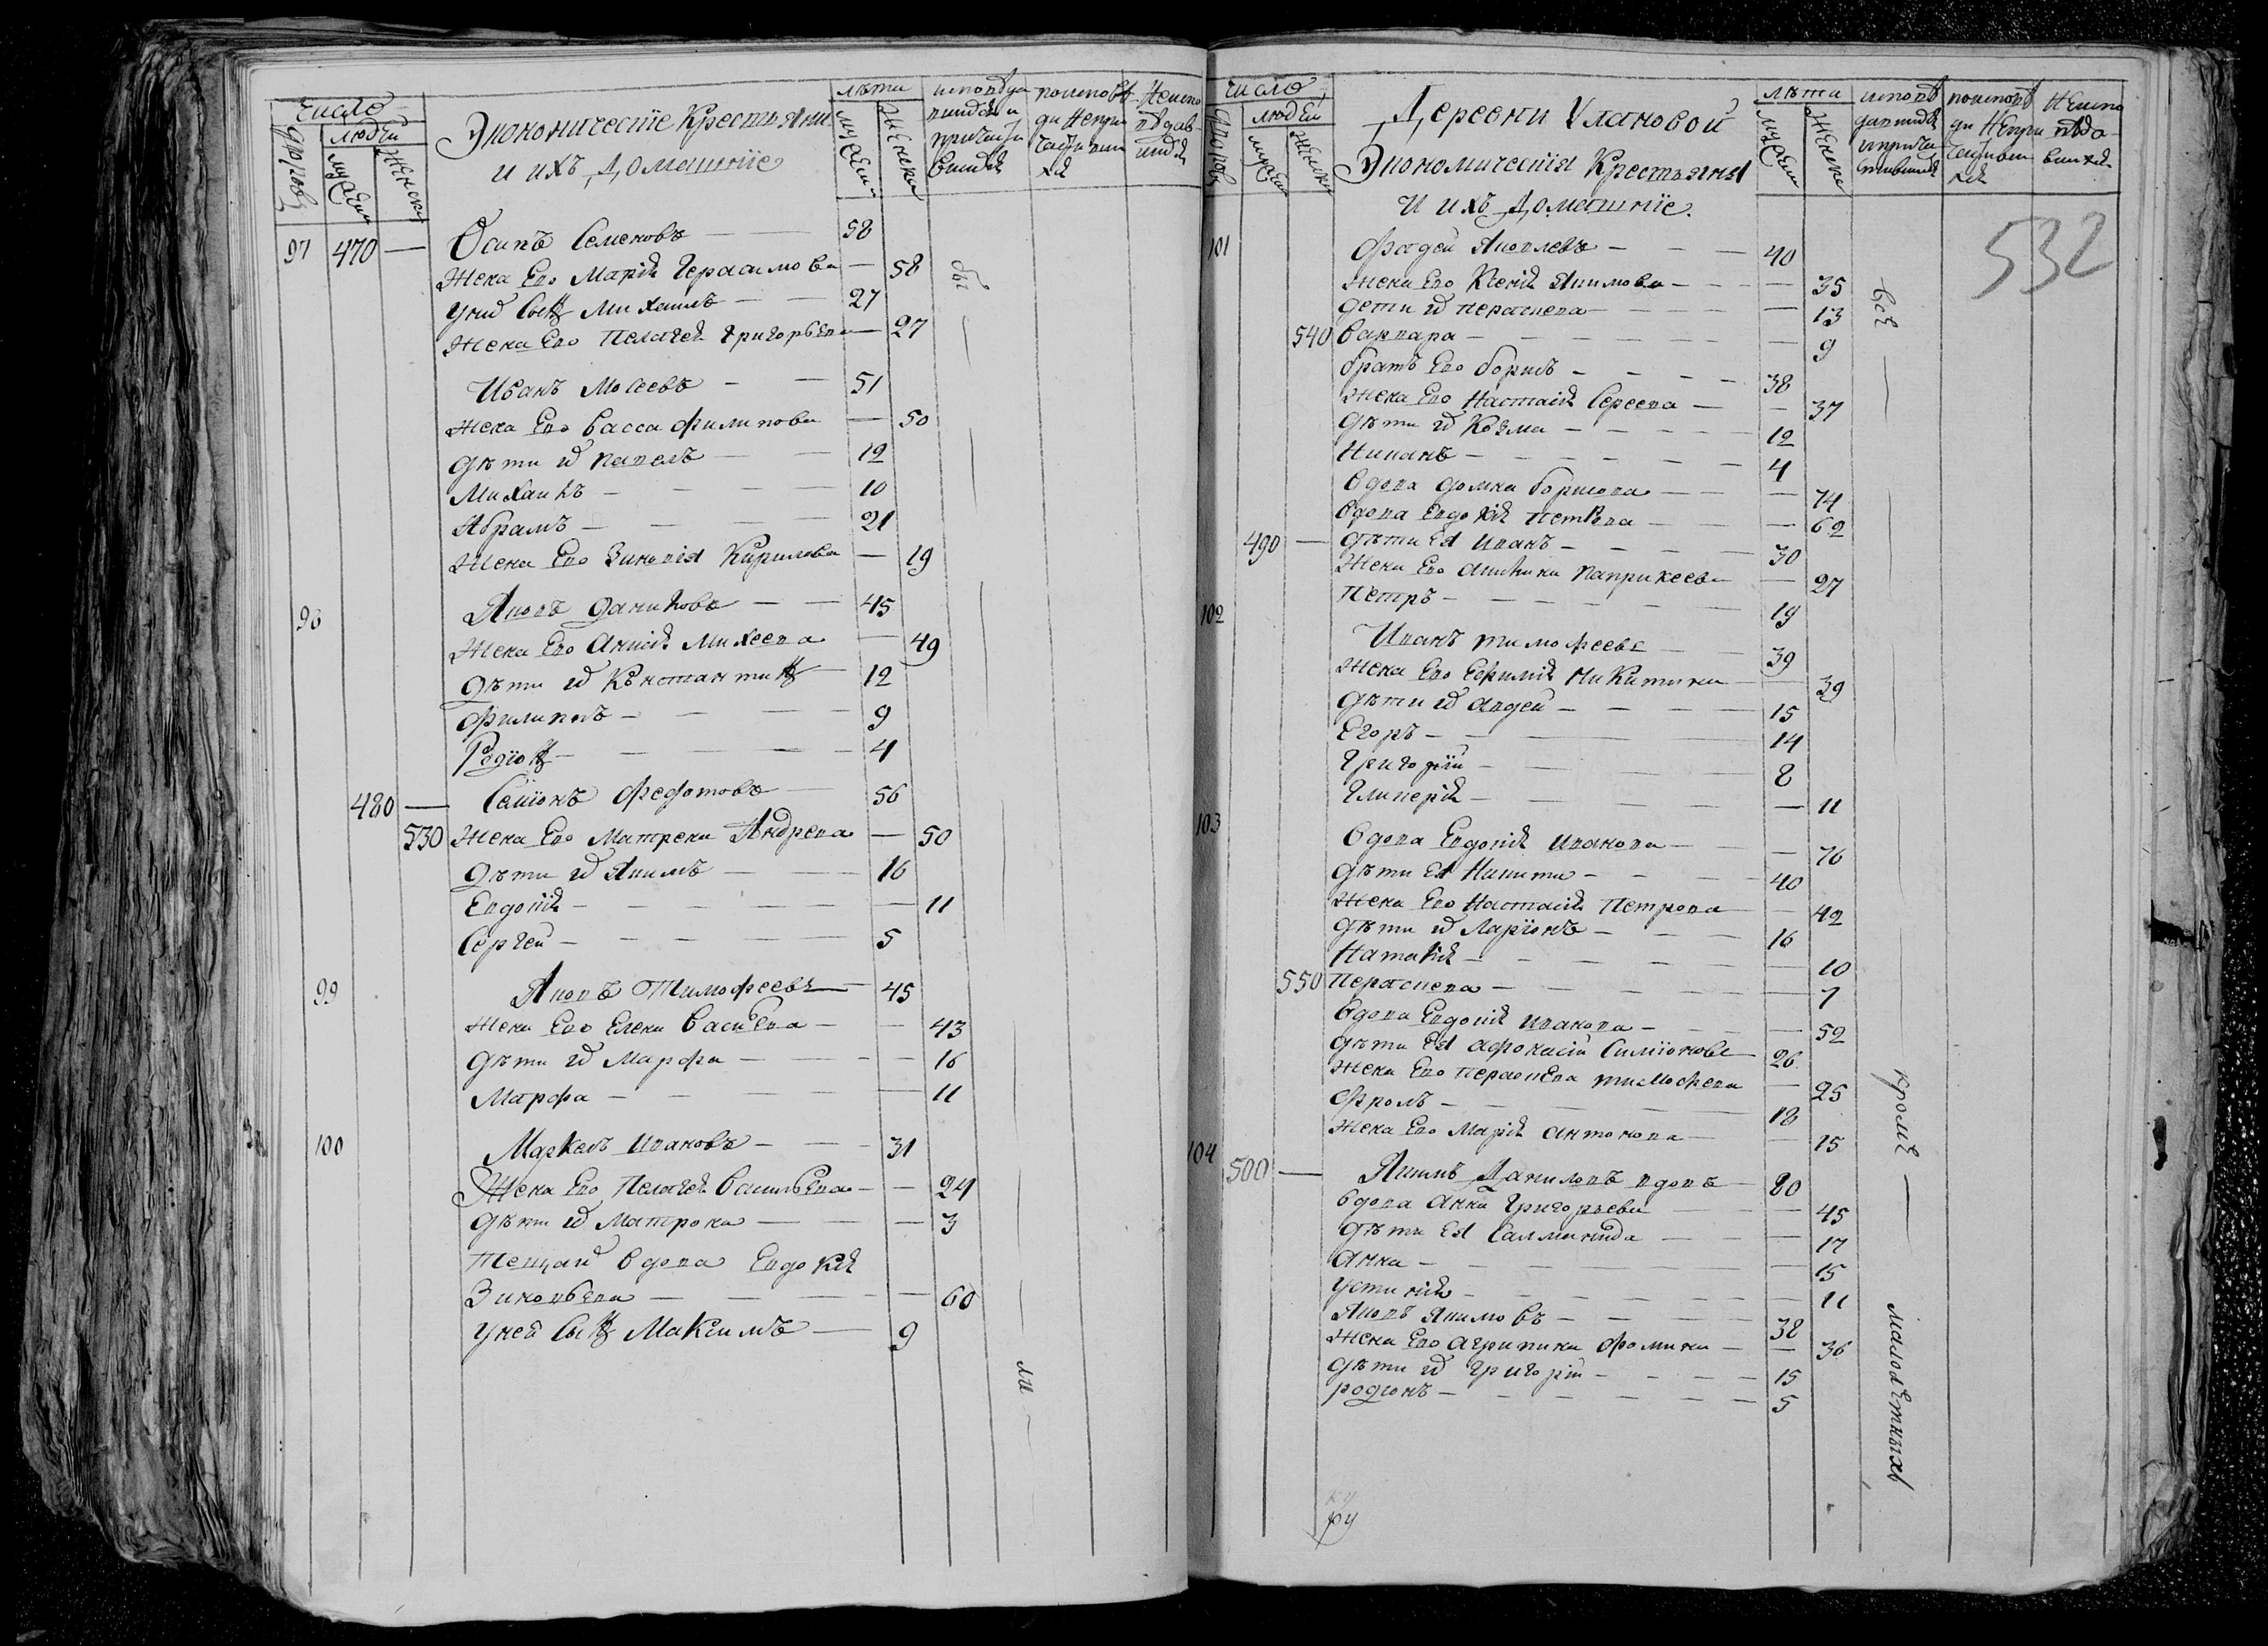 Число
дворовъ
людей
мужеска
женска
Экономическіе Крестьяни
и ихъ Домашніе
лѣта
мужеска
женска
97 470 — Осипъ Семеновъ — — 58
Жена Ево Марія Герасимова — 58
у нихъ Сынъ Михаилъ — — 27
Жена Ево Пелагея Григорьева — 27
Иванъ Мосеевъ — — 51
Жена Ево Васса Филипова — 50
дѣти их Павелъ — — 12
Михаилъ — — — 10
Абрамъ — — — 21
Жена Ево Зиновія Кирилова — 19
98 Яковъ Даниловъ — — 45
Жена Ево Анисія Михеева — 49
дѣти их Константинъ — 12
Филиппъ — — — 9
Родіонъ — — — 4
480 — Симіонъ Федотовъ — 56
530 Жена Ево Матрена Андреева — 50
дѣти их Якимъ — — 16
Евдокія — — — — 11
Сергей — — — 5
99 Яковъ Тимофеевъ — 45
Жена Ево Елена Васильева — — 43
дѣти их Марфа — — — 16
Марфа — — — — 11
100 Маркелъ Ивановъ — — 31
Жена Ево Пелагея Васильева — — 24
дѣти их Матрона — — — 3
Теща их вдова Евдокія
Зиновьева — — — — 60
у ней Сынъ Максимъ — 9
бы — — — — ли —
Число
дворовъ
людей
мужеска
женска
Деревни Улановой
Экономическія Крестьяня
и ихъ Домашніе.
лѣта
мужеска
женска
532
101 Фадей Яковлевъ — — 40
Жена Ево Ксенія Якимова — — — 35
дети их Пераскева — — — — 13
540 Варвара — — — — 9
братъ Ево Борисъ — — — 38
Жена Ево Настасія Сергеева — — 37
дѣти их Козма — — — — 12
Никанъ — — — — 4
Вдова Домна Борисова — — — 74
Вдова Евдокія Петрова — — — 62
490 — дѣти Ея Иванъ — — — 30
Жена Ево Патрикеева — 27
Петръ — — — — — 19
102 Иванъ Тимофеевъ — — 39
Жена Ево Ефимія Никитина — 39
дѣти их Авдей — — — 15
Егоръ — — 14
Григорій — — — 8
Гликерія — — — — 11
103 Вдова Евдокія Иванова — — — 76
дѣти Ея Никита — — — 40
Жена Ево Настасія Петрова — 42
дѣти их Ларіонъ — — — 16
Наталія — — — — 10
550 Пераскева — — — — 7
Вдова Евдокія Иванова — — — 52
дѣти Ея Афонасій Симіоновъ — 26
Жена Ево Пераскева Тимофеева — 25
Фролъ — — — — 18
Жена Ево Марія Антонова — — 15
104 500 — Якимъ Даниловъ вдовъ — 80
Вдова Анна Григорьева — — 45
дѣти Ея — — — 17
Анна — — — — 15
Устинія — — — — 11
Яковъ Якимовъ — — — 38
Жена Ево Агрипина Фомина — — 36
дѣти их Григорій — — — 15
родіонъ — — — — 5
всѣ — — — кромѣ — малолѣтныхъ